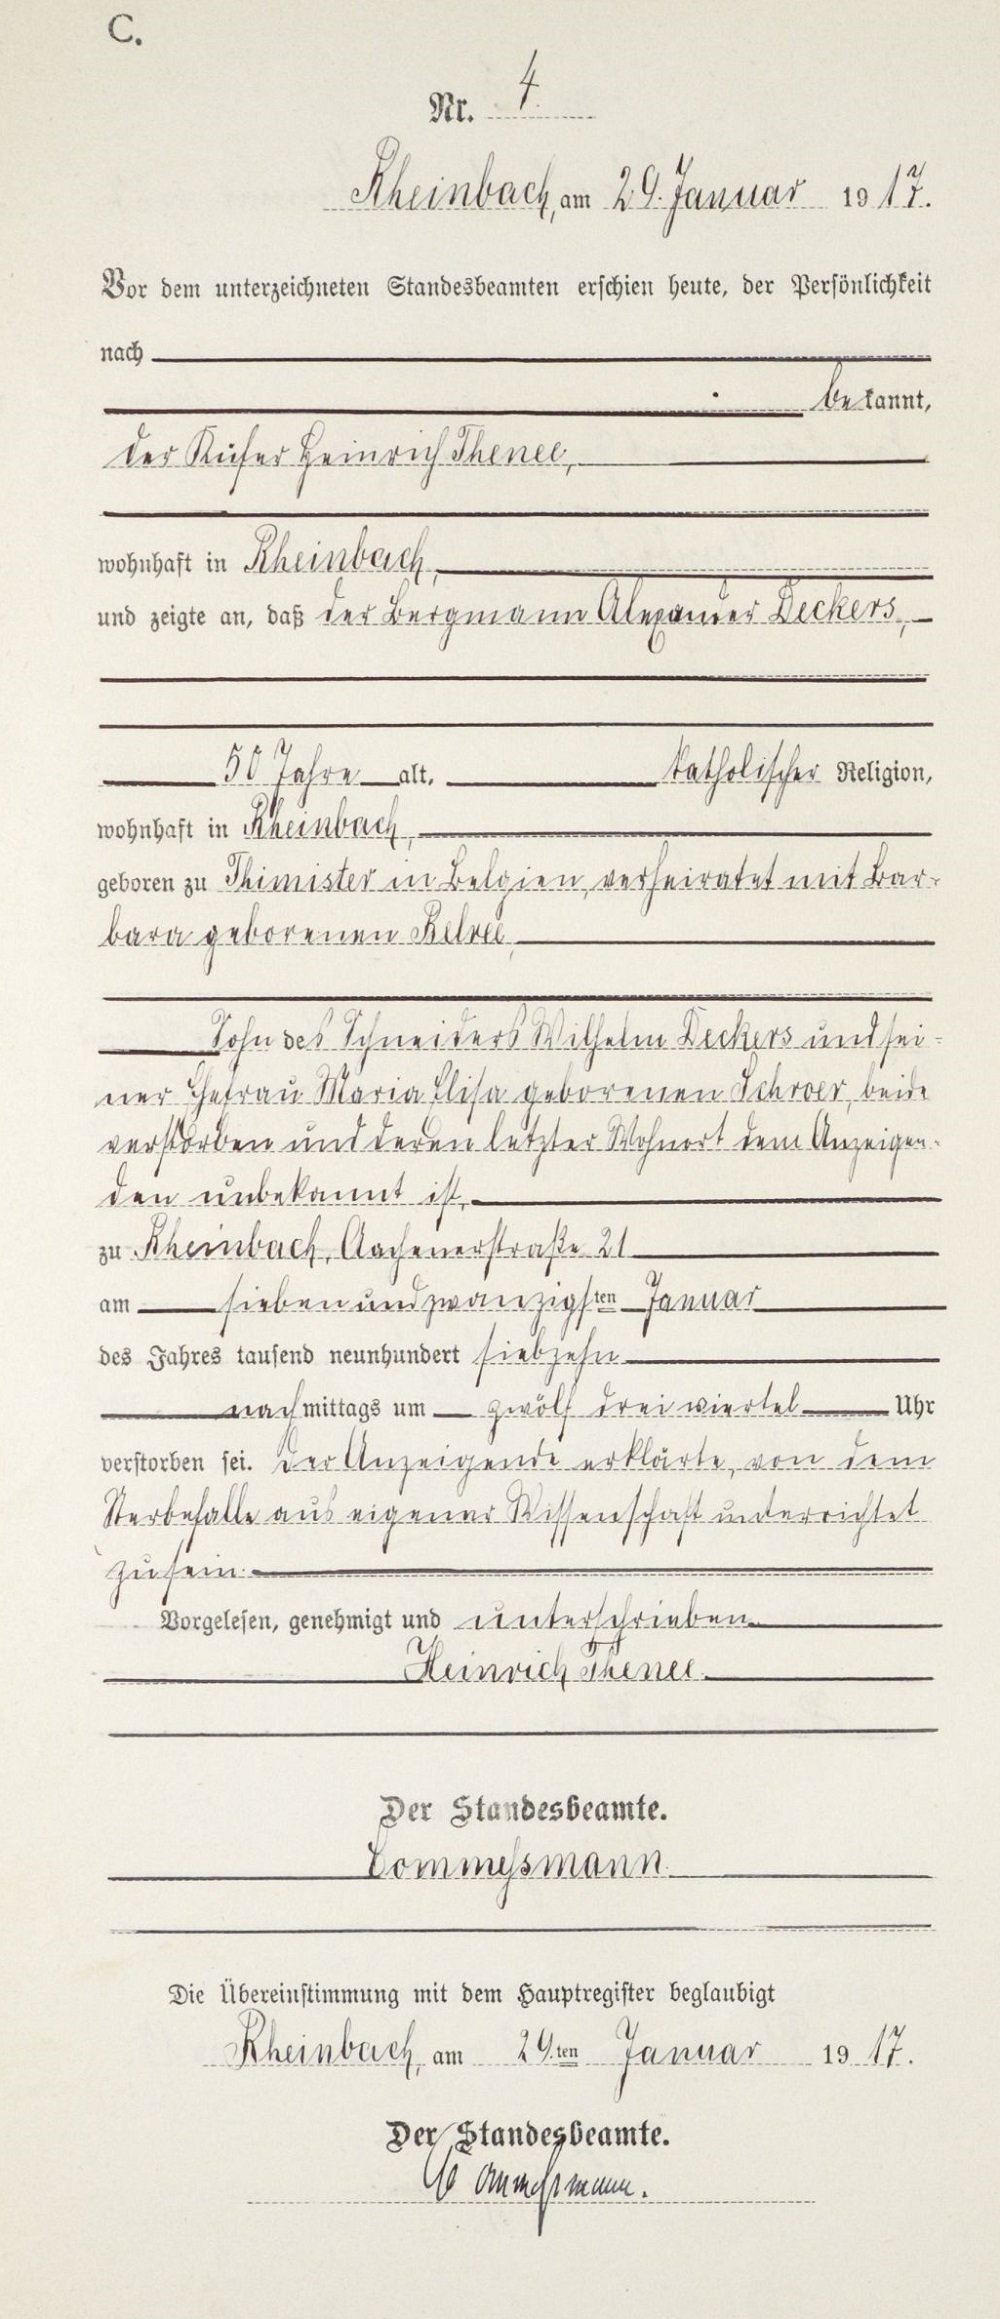 C.
Nr. 4
Rheinbach, am 29. Januar 1917.
Vor dem unterzeichneten Standesbeamten erschien heute, der Persönlichkeit
nach
bekannt,
der Küfer Heinrich Thenee,
wohnhaft in Rheinbach,
und zeigte an, daß der Bergmann Alexander Deckers,
50 Jahre alt, katholischer Religion,
wohnhaft in Rheinbach,
geboren zu Thimister in Belgien, verheiratet mit Bar-
bara geborenen
Sohn des Schneiders Wilhelm Deckers und sei-
ner Ehefrau Maria Elisa geborenen Schroer, beide
verstorben und deren letzter Wohnort dem Anzeigen-
den unbekannt ist,
zu Rheinbach, Aachenerstraße 21
am siebenundzwanzigsten Januar
des Jahres tausend neunhundert siebzehn
nachmittags um zwölf dreiviertel Uhr
verstorben sei. Der Anzeigende erklärte, von dem
Sterbefalle aus eigener Wissenschaft unterrichtet
zu sein.
Vorgelesen, genehmigt und unterschrieben
Heinrich Thenee.
Der Standesbeamte.
Commeßmann.
Die Übereinstimmung mit dem Hauptregister beglaubigt
Rheinbach, am 29.ten Januar 1917.
Der Standesbeamte.
Commeßmann.